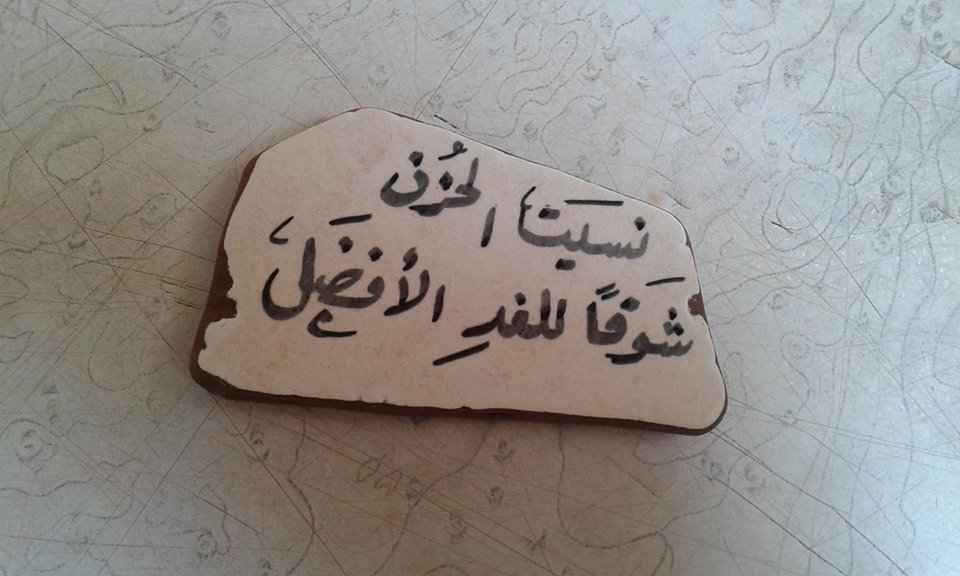 نَسينا الحُزن
شَوقاً للغدِ الأفضَلِ